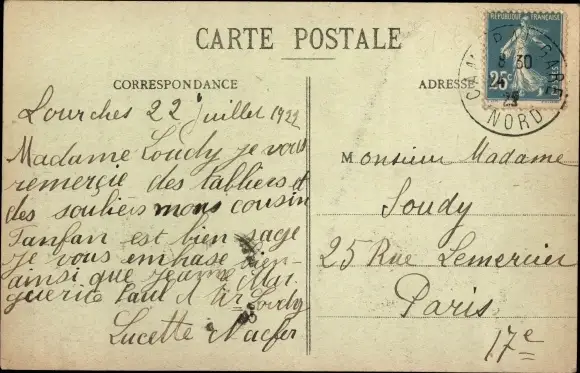 CARTE POSTALE
CORRESPONDANCE
ADRESSE
RÉPUBLIQUE FRANÇAISE
25c
8 30
25
NORD
Lourches 22 Juillet 1922
Madame Soudy je vous
remerçie des tabliers et
des souliers mons cousin
Fanfan est bien sage
je vous embrase bien
ainsi que jeanne Mar
guerite Paul
Soudy
Lucette
Monsieur Madame
Soudy
25 Rue Lemercier
Paris
17e